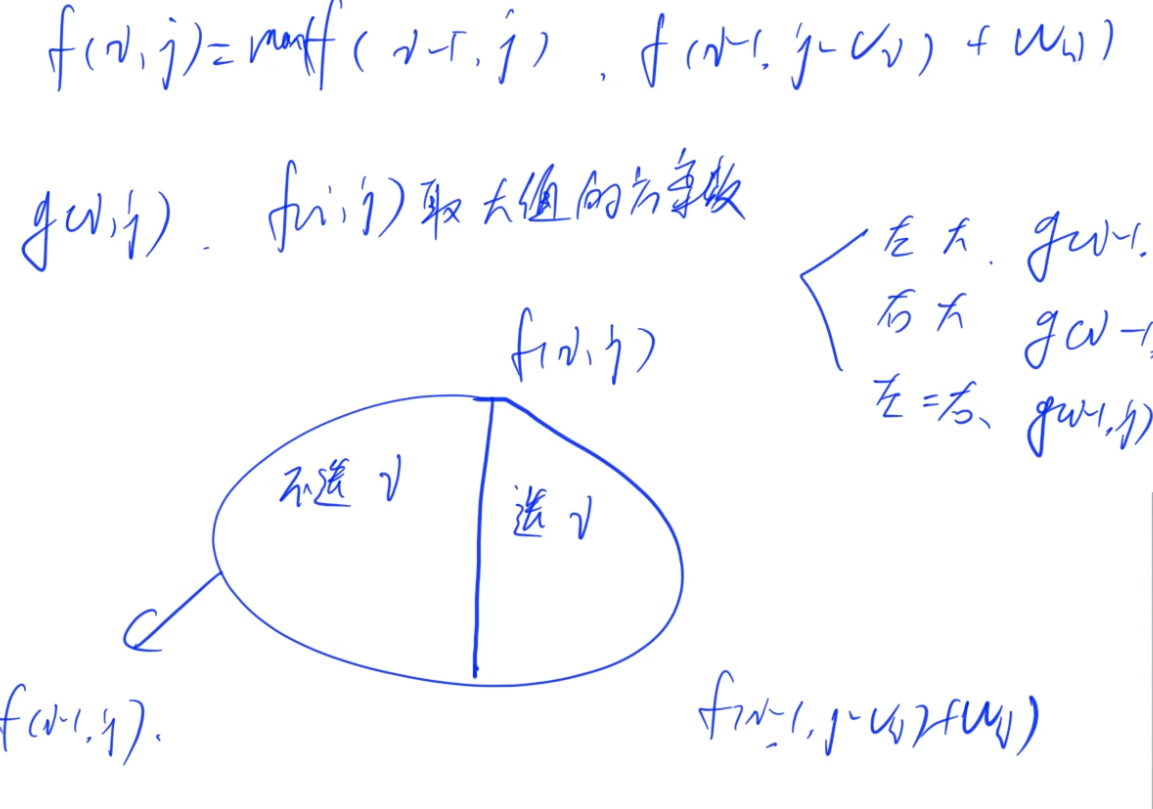 f(i,j)=max(f(i-1,j), f(i-1,j-vi)+wi)
g(i,j). f(i,j)取大值的方案数
左大. g(i-1.
右大 g(i-1,
左=右、g(i-1,j)
f(i,j)
不选 i
选 i
f(i-1,j).
f(i-1,j-vi)+wi)